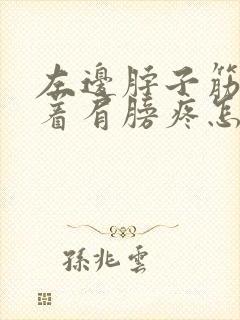 左邊脖子筋
着肩膀疼怎
孫兆雲